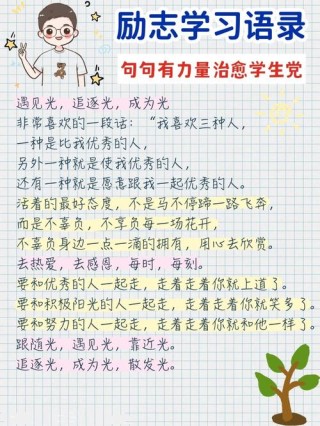 励志学习语录
句句有力量治愈学生党
遇见光，追逐光，成为光
非常喜欢的一段话：“我喜欢三种人，
一种是比我优秀的人，
另外一种就是使我优秀的人，
还有一种就是愿意跟我一起优秀的人。
活着的最好态度，不是马不停蹄一路飞奔，
而是不辜负，不享负每一场花开，
不辜负身边一点一滴的拥有，用心去欣赏。
去热爱，去感恩，每时，每刻。
要和优秀的人一起走，走着走着你就上道了。
要和积极阳光的人一起走，走着走着你就笑多了。
要和努力的人一起走，走着走着你就和他一样了。
跟随光，遇见光，靠近光。
追逐光，成为光，散发光。